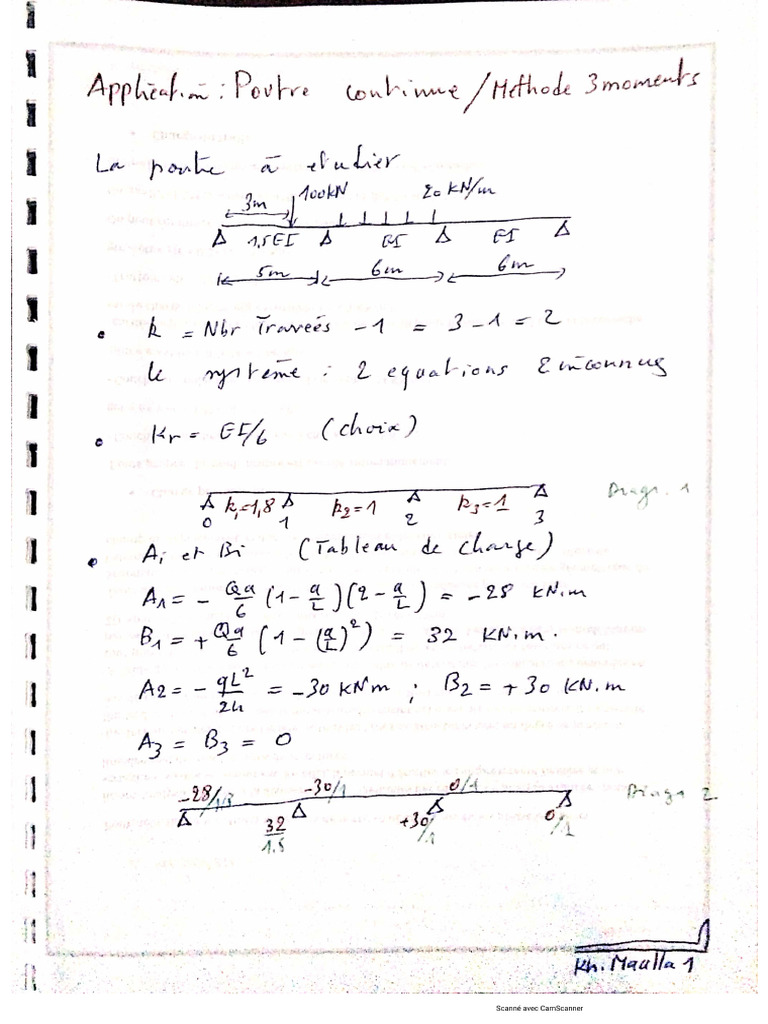 Application : Poutre continue / Méthode 3 moments
La poutre à etudier
3m 100kN 20 kN/m
1,5EI EI EI
5m 6m 6m
• k = Nbr Travées - 1 = 3 - 1 = 2
le système : 2 equations 2 inconnus
• Kr = EI/6 (choix)
k₁=1,8 k₂=1 k₃=1 Diagr. 1
0 1 2 3
• Ai et Bi (Tableau de charge)
A1 = - Qa/6 (1 - a/L)(2 - a/L) = -28 KN.m
B1 = + Qa/6 (1 - (a/L)²) = 32 KN.m.
A2 = - qL²/24 = -30 KNm ; B2 = +30 KN.m
A3 = B3 = 0
-28/1,8 -30/1 0/1 Diagr 2
32/1.8 +30/1 0/1
Kh. Maalla 1
Scanné avec CamScanner